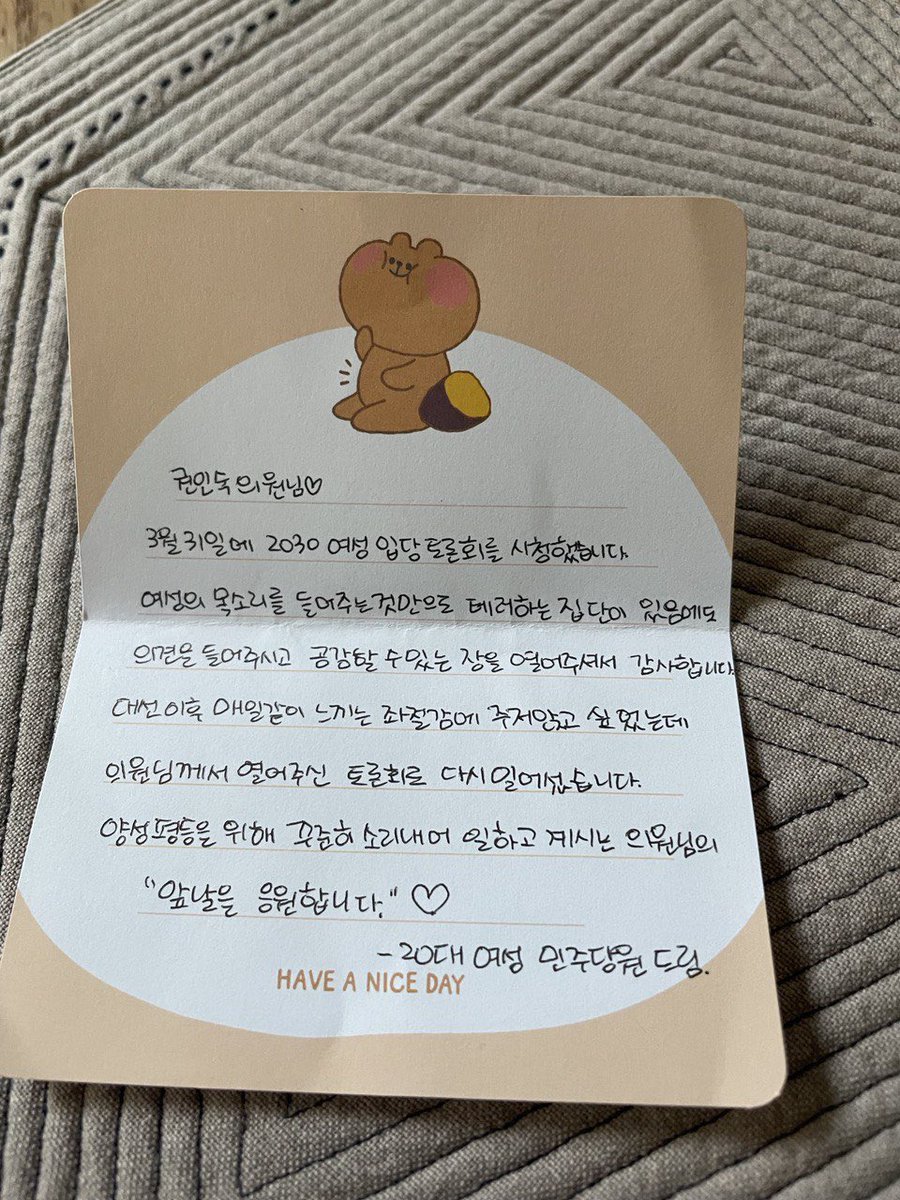 권인숙 의원님♡
3월 31일에 2030 여성 입당 토론회를 시청했습니다.
여성의 목소리를 들어주는것만으로 테러하는 집단이 있음에도
의견을 들어주시고 공감할 수 있는 장을 열어주셔서 감사합니다
대선 이후 매일같이 느끼는 좌절감에 주저앉고 싶었는데
의원님께서 열어주신 토론회로 다시 일어섰습니다.
양성평등을 위해 꾸준히 소리내어 일하고 계시는 의원님의
"앞날을 응원합니다." ♡
- 20대 여성 민주당원 드림.
HAVE A NICE DAY